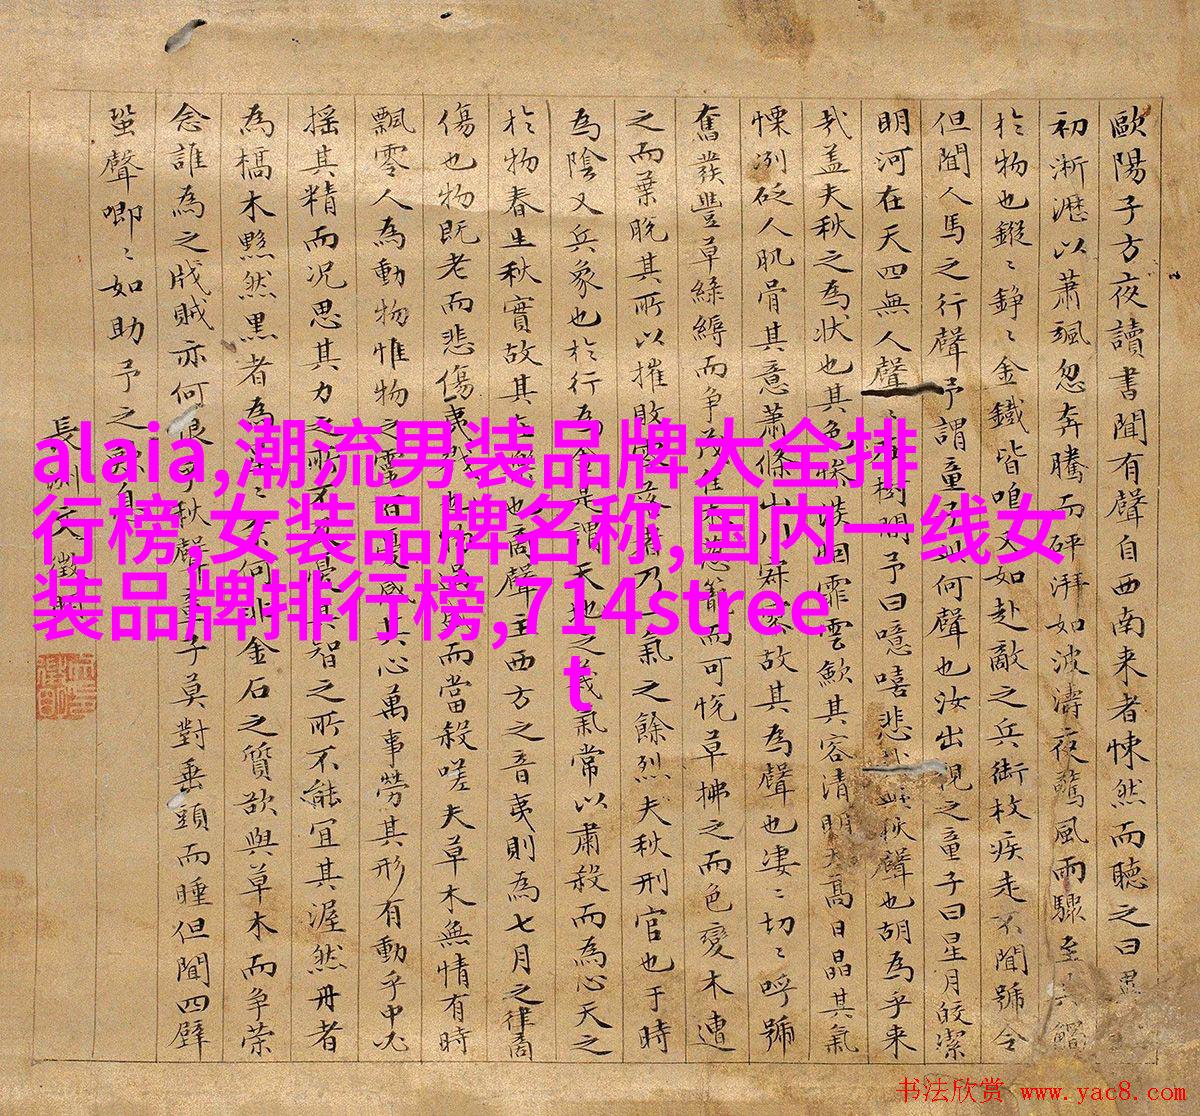 歐陽子方夜讀書聞有聲自西南来者悚然而聽之曰異
初淅瀝以蕭颯忽奔騰而砰湃如波濤夜驚風雨驟至其觸
於物也鏦〻錚〻金鐵皆鳴又如赴敵之兵銜枚疾走不聞號令
但聞人馬之行聲予謂童子此何聲也汝出視之童子曰星月皎潔
明河在天四無人聲在樹間予曰噫嘻悲哉此秋聲也胡為乎来
哉盖夫秋之為状也其色慘淡烟霏雲歛其容清明天髙日晶其氣
慄冽砭人肌骨其意蕭條山川寂寥故其為聲也凄〻切〻呼號
奮發豐草綠縟而争茂佳木葱蘢而可悦草拂之而色變木遭
之而葉脱其所以摧敗零落者乃一氣之餘烈夫秋刑官也于時
為陰又兵象也於行為金是謂天地之義氣常以肅殺而為心天之
於物春生秋實故其在樂也商聲主西方之音夷則為七月之律商
傷也物既老而悲傷夷戮也物過盛而當殺嗟夫草木無情有時
飄零人為動物惟物之靈百憂感其心萬事勞其形有動乎中必
摇其精而况思其力之所不及憂其智之所不能宜其渥然丹者
為槁木黟然黒者為星〻奈何非金石之質欲與草木而争荣
念誰為之戕賊亦何恨乎秋聲童子莫對垂頭而睡但聞四壁
蛩聲唧〻如助予之歎息
長洲文徵明
alaia,潮流男装品牌大全排
行榜,女装品牌名称,国内一线女
装品牌排行榜,714stree
t
书法欣赏 www.yac8.com